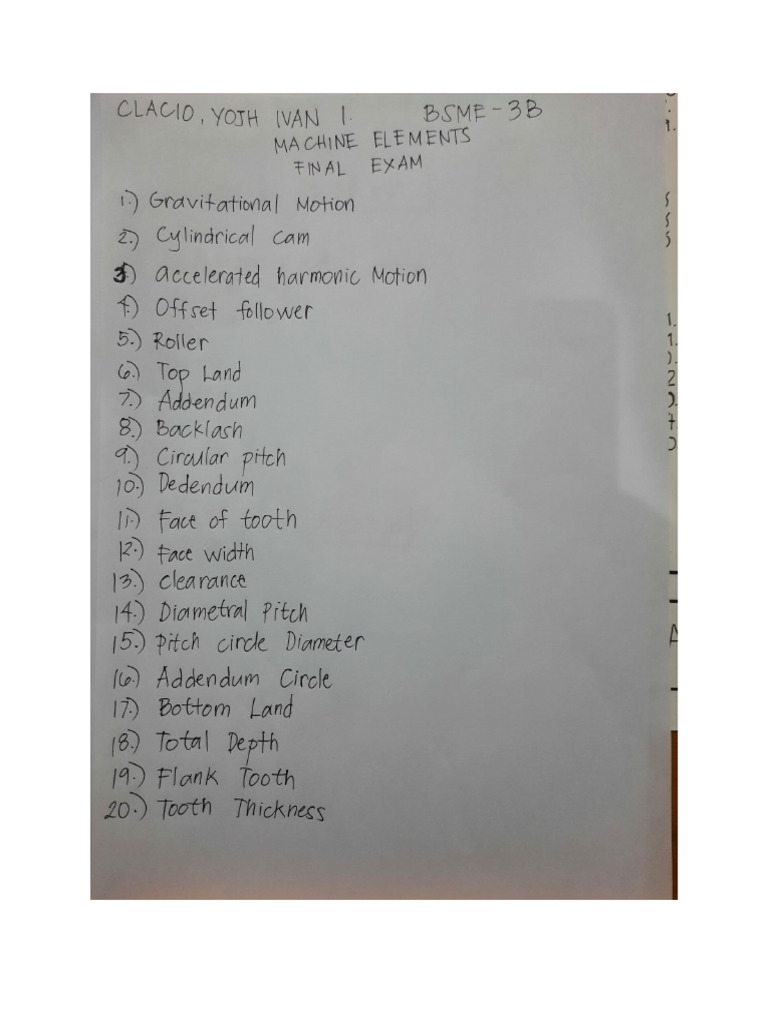 CLACIO, YOJH IVAN I. BSME-3B
MACHINE ELEMENTS
FINAL EXAM
1.) Gravitational Motion
2.) Cylindrical cam
3) accelerated harmonic Motion
4.) Offset follower
5.) Roller
6.) Top Land
7.) Addendum
8.) Backlash
9.) Circular pitch
10.) Dedendum
11.) Face of tooth
12.) Face width
13.) Clearance
14.) Diametral Pitch
15.) Pitch circle Diameter
16.) Addendum Circle
17.) Bottom Land
18.) Total Depth
19.) Flank Tooth
20.) Tooth Thickness